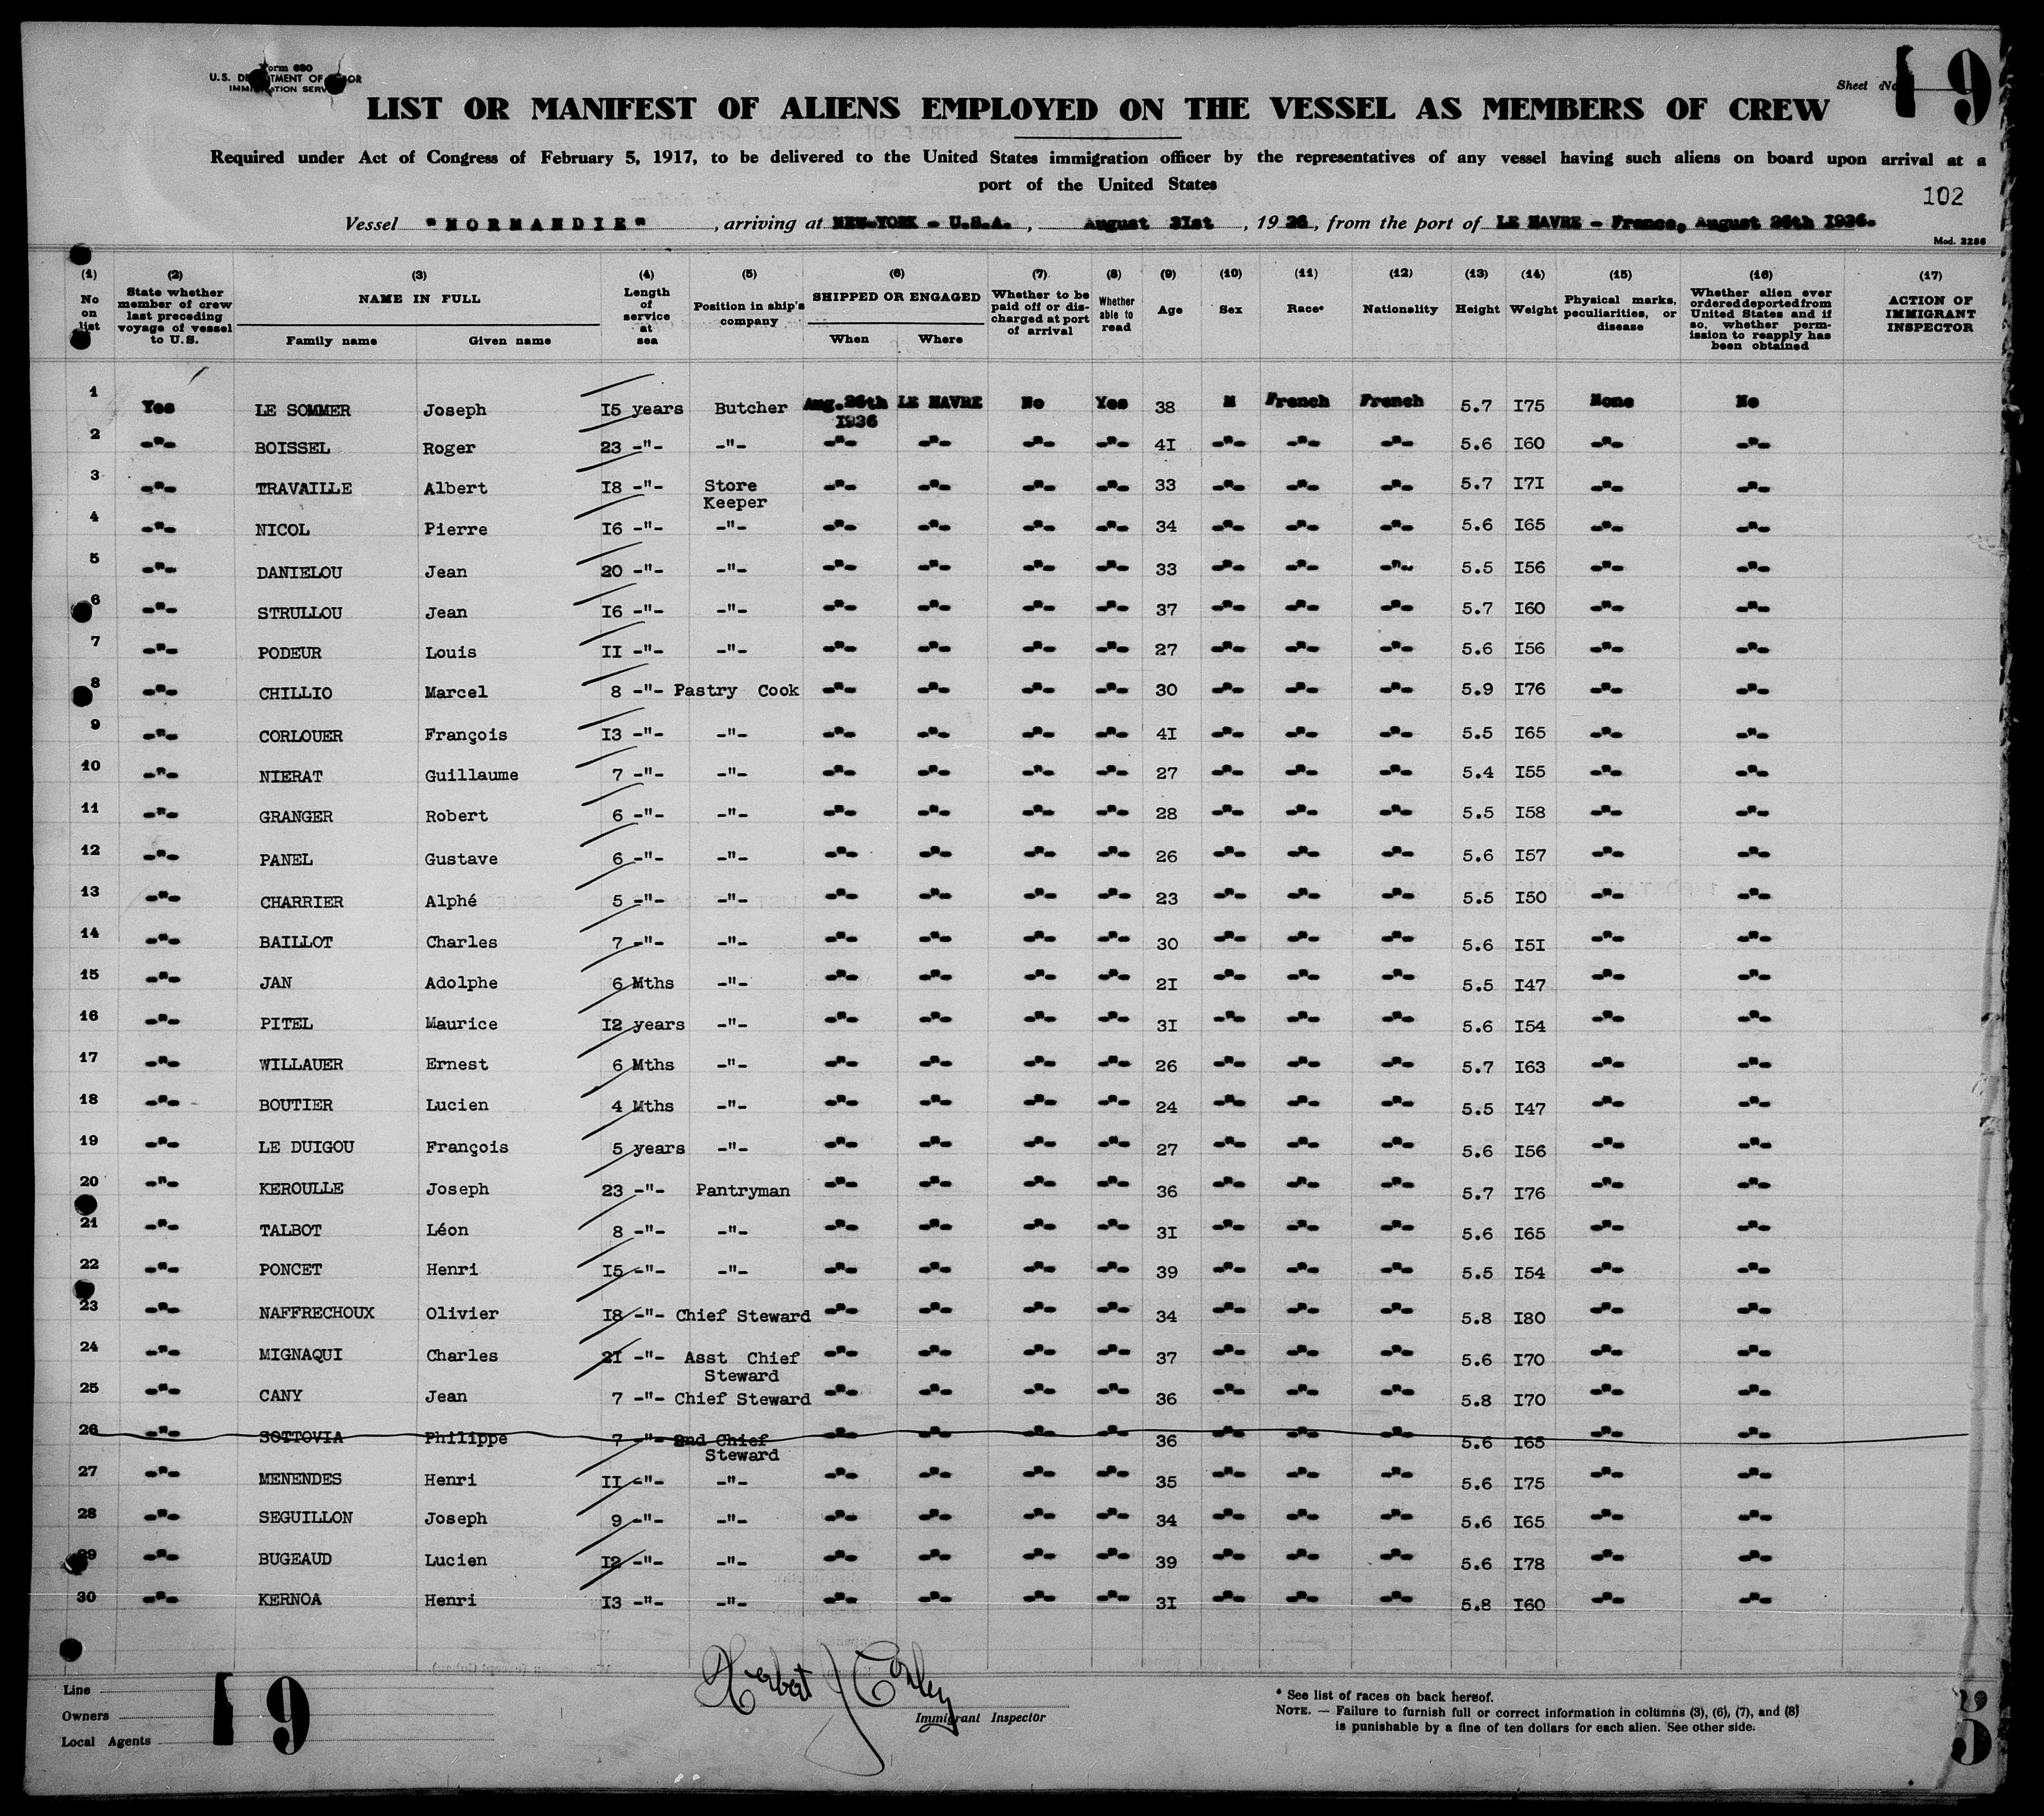 Form 680
U.S. DEPARTMENT OF LABOR
IMMIGRATION SERVICE
Sheet No. 19
LIST OR MANIFEST OF ALIENS EMPLOYED ON THE VESSEL AS MEMBERS OF CREW
Required under Act of Congress of February 5, 1917, to be delivered to the United States immigration officer by the representatives of any vessel having such aliens on board upon arrival at a
port of the United States
102
Vessel "NORMANDIE", arriving at NEW-YORK - U.S.A., August 31st, 1936, from the port of LE HAVRE - France, August 26th 1936.
Mod. 3286
(1) No on list (2) State whether member of crew last preceding voyage of vessel to U.S. (3) NAME IN FULL Family name Given name (4) Length of service at sea (5) Position in ship's company (6) SHIPPED OR ENGAGED When Where (7) Whether to be paid off or discharged at port of arrival (8) Whether able to read (9) Age (10) Sex (11) Race* (12) Nationality (13) Height (14) Weight (15) Physical marks, peculiarities, or disease (16) Whether alien ever ordered deported from United States and if so, whether permission to reapply has been obtained (17) ACTION OF IMMIGRANT INSPECTOR
1 Yes LE SOMMER Joseph I5 years Butcher Aug.26th I936 LE HAVRE No Yes 38 M French French 5.7 I75 None No
2 -"- BOISSEL Roger 23 -"- -"- -"- -"- -"- -"- 4I -"- -"- -"- 5.6 I60 -"- -"-
3 -"- TRAVAILLE Albert I8 -"- Store Keeper -"- -"- -"- -"- 33 -"- -"- -"- 5.7 I7I -"- -"-
4 -"- NICOL Pierre I6 -"- -"- -"- -"- -"- -"- 34 -"- -"- -"- 5.6 I65 -"- -"-
5 -"- DANIELOU Jean 20 -"- -"- -"- -"- -"- -"- 33 -"- -"- -"- 5.5 I56 -"- -"-
6 -"- STRULLOU Jean I6 -"- -"- -"- -"- -"- -"- 37 -"- -"- -"- 5.7 I60 -"- -"-
7 -"- PODEUR Louis II -"- -"- -"- -"- -"- -"- 27 -"- -"- -"- 5.6 I56 -"- -"-
8 -"- CHILLIO Marcel 8 -"- Pastry Cook -"- -"- -"- -"- 30 -"- -"- -"- 5.9 I76 -"- -"-
9 -"- CORLOUER François I3 -"- -"- -"- -"- -"- -"- 4I -"- -"- -"- 5.5 I65 -"- -"-
10 -"- NIERAT Guillaume 7 -"- -"- -"- -"- -"- -"- 27 -"- -"- -"- 5.4 I55 -"- -"-
11 -"- GRANGER Robert 6 -"- -"- -"- -"- -"- -"- 28 -"- -"- -"- 5.5 I58 -"- -"-
12 -"- PANEL Gustave 6 -"- -"- -"- -"- -"- -"- 26 -"- -"- -"- 5.6 I57 -"- -"-
13 -"- CHARRIER Alphé 5 -"- -"- -"- -"- -"- -"- 23 -"- -"- -"- 5.5 I50 -"- -"-
14 -"- BAILLOT Charles 7 -"- -"- -"- -"- -"- -"- 30 -"- -"- -"- 5.6 I5I -"- -"-
15 -"- JAN Adolphe 6 Mths -"- -"- -"- -"- -"- 2I -"- -"- -"- 5.5 I47 -"- -"-
16 -"- PITEL Maurice I2 years -"- -"- -"- -"- -"- 3I -"- -"- -"- 5.6 I54 -"- -"-
17 -"- WILLAUER Ernest 6 Mths -"- -"- -"- -"- -"- 26 -"- -"- -"- 5.7 I63 -"- -"-
18 -"- BOUTIER Lucien 4 Mths -"- -"- -"- -"- -"- 24 -"- -"- -"- 5.5 I47 -"- -"-
19 -"- LE DUIGOU François 5 years -"- -"- -"- -"- -"- 27 -"- -"- -"- 5.6 I56 -"- -"-
20 -"- KEROULLE Joseph 23 -"- Pantryman -"- -"- -"- -"- 36 -"- -"- -"- 5.7 I76 -"- -"-
21 -"- TALBOT Léon 8 -"- -"- -"- -"- -"- -"- 3I -"- -"- -"- 5.6 I65 -"- -"-
22 -"- PONCET Henri I5 -"- -"- -"- -"- -"- -"- 39 -"- -"- -"- 5.5 I54 -"- -"-
23 -"- NAFFRECHOUX Olivier I8 -"- Chief Steward -"- -"- -"- -"- 34 -"- -"- -"- 5.8 I80 -"- -"-
24 -"- MIGNAQUI Charles 2I -"- Asst Chief Steward -"- -"- -"- -"- 37 -"- -"- -"- 5.6 I70 -"- -"-
25 -"- CANY Jean 7 -"- Chief Steward -"- -"- -"- -"- 36 -"- -"- -"- 5.8 I70 -"- -"-
26 -"- SOTTOVIA Philippe 7 -"- 2nd Chief Steward -"- -"- -"- -"- 36 -"- -"- -"- 5.6 I65 -"- -"-
27 -"- MENENDES Henri II -"- -"- -"- -"- -"- -"- 35 -"- -"- -"- 5.6 I75 -"- -"-
28 -"- SEGUILLON Joseph 9 -"- -"- -"- -"- -"- -"- 34 -"- -"- -"- 5.6 I65 -"- -"-
29 -"- BUGEAUD Lucien I2 -"- -"- -"- -"- -"- -"- 39 -"- -"- -"- 5.6 I78 -"- -"-
30 -"- KERNOA Henri I3 -"- -"- -"- -"- -"- -"- 3I -"- -"- -"- 5.8 I60 -"- -"-
Line
Owners
Local Agents
19
Herbert J Corley
Immigrant Inspector
* See list of races on back hereof.
NOTE. — Failure to furnish full or correct information in columns (3), (6), (7), and (8)
is punishable by a fine of ten dollars for each alien. See other side.